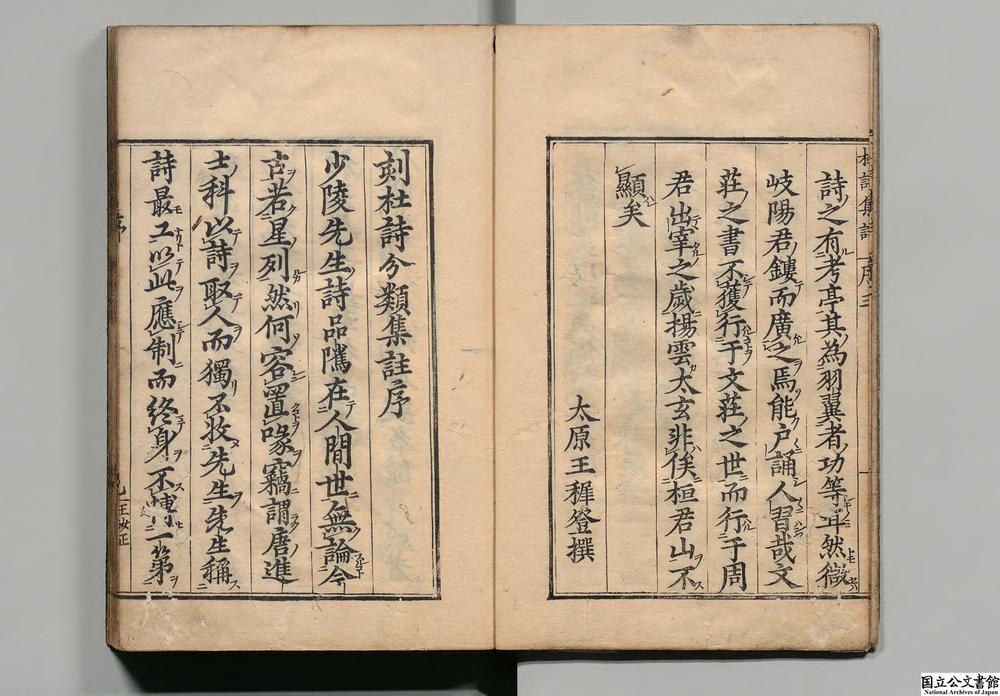 詩之有考亭其為羽翼者功等耳然微
岐陽君鏤而廣之焉能户誦人習哉文
莊之書不獲行于文莊之世而行于周
君出宰之歲揚雲太玄非俟桓君山不
顯矣
太原王穉登撰
刻杜詩分類集註序
少陵先生詩品隲在人間世無論今
古若星列然何容置喙竊謂唐進
士科以詩取人而獨不收先生先生稱
詩最工以此應制而終身不博一第
序
国立公文書館
National Archives of Japan